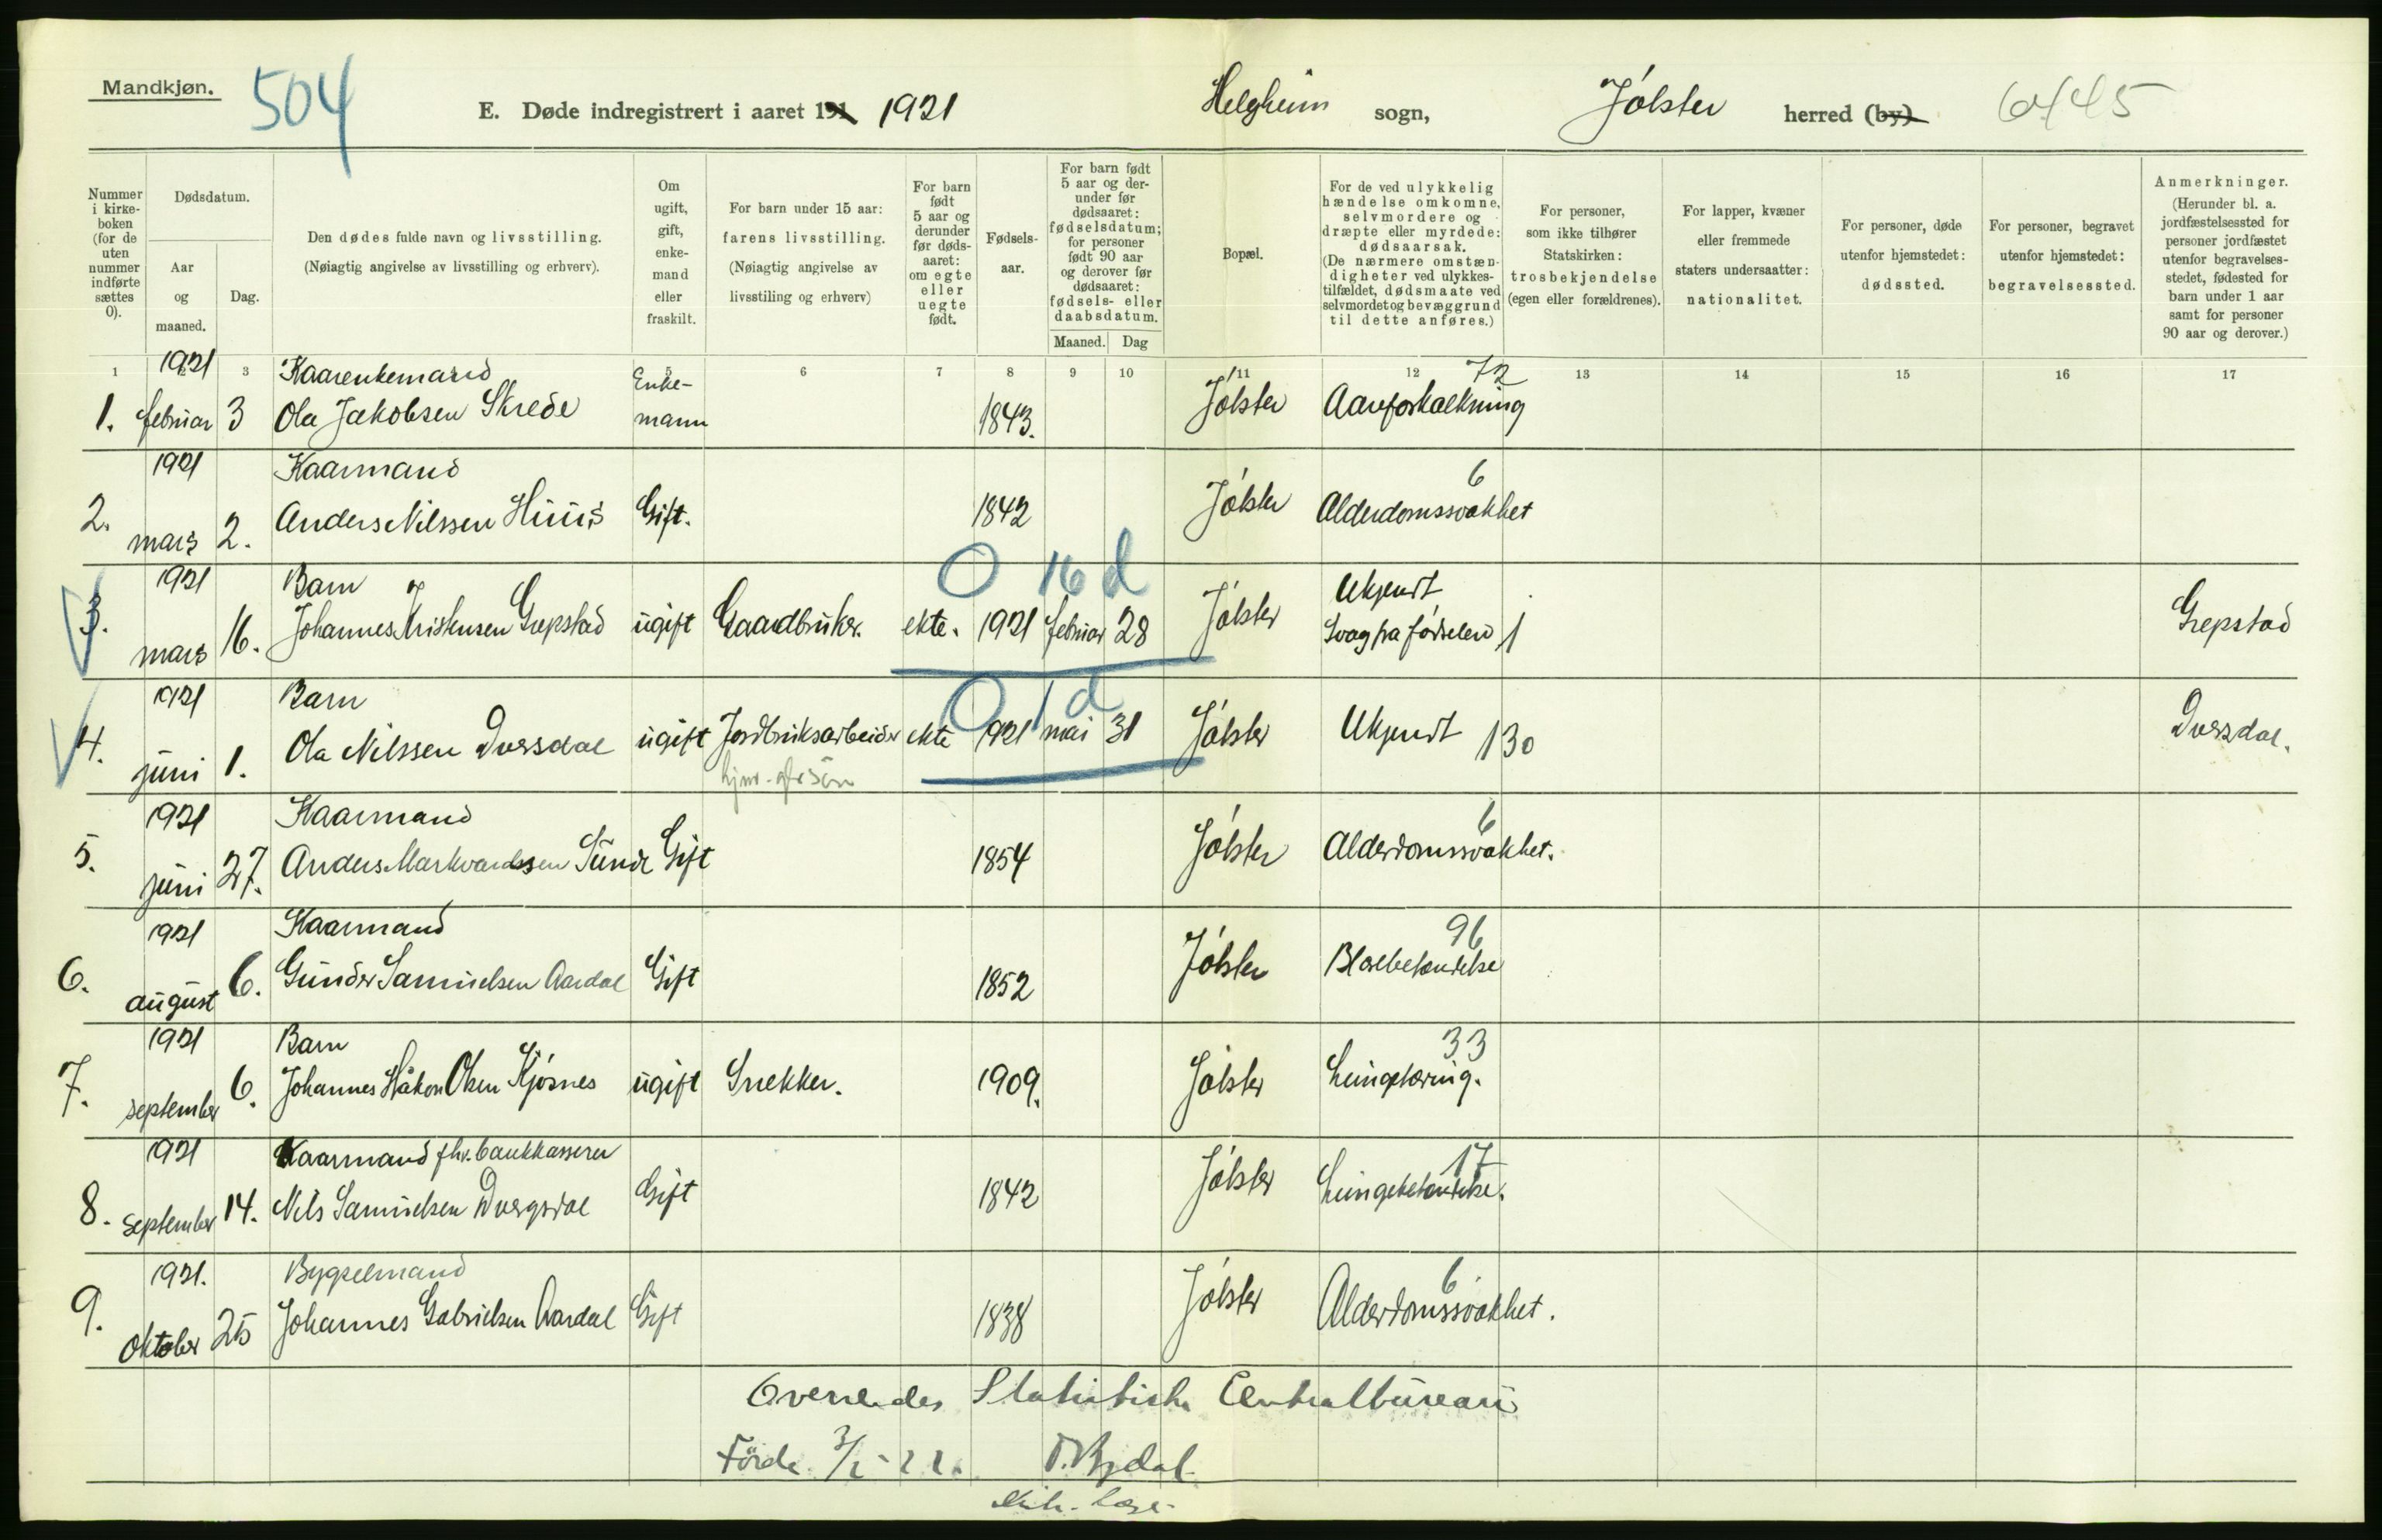 Mandkjøn.
504
E. Døde indregistrert i aaret 191 1921
Helgheim sogn,
Jølster herred (by)
6445
Nummer i kirke-boken (for de uten nummer indførte sættes 0).
Dødsdatum.
Aar og maaned.
Dag.
Den dødes fulde navn og livsstilling.
(Nøiagtig angivelse av livsstilling og erhverv).
Om ugift, gift, enke-mand eller fraskilt.
For barn under 15 aar: farens livsstilling.
(Nøiagtig angivelse av livsstiling og erhverv)
For barn født 5 aar og derunder før døds-aaret: om egte eller uegte født.
Fødsels-aar.
For barn født 5 aar og der-under før dødsaaret: fødselsdatum; for personer født 90 aar og derover før dødsaaret: fødsels- eller daabsdatum.
Maaned.
Dag
Bopæl.
For de ved ulykkelig hændelse omkomne, selvmordere og dræpte eller myrdede: dødsaarsak.
(De nærmere omstæn-digheter ved ulykkes-tilfældet, dødsmaate ved selvmordet og bevæggrund til dette anføres.)
For personer, som ikke tilhører Statskirken: trosbekjendelse (egen eller forældrenes).
For lapper, kvæner eller fremmede staters undersaatter: nationalitet.
For personer, døde utenfor hjemstedet: dødssted.
For personer, begravet utenfor hjemstedet: begravelsessted.
Anmerkninger.
(Herunder bl. a. jordfæstelsessted for personer jordfæstet utenfor begravelses-stedet, fødested for barn under 1 aar samt for personer 90 aar og derover.)
1 3 5 6 7 8 9 10 11 12 13 14 15 16 17
1921 Kaarenkemand Enke- 72
1. februar 3 Ola Jakobsen Skrede mann 1843. Jølster Aareforkalkning
1921 Kaarmand 6
2. mars 2. Anders Nilssen Huus Gift. 1842 Jølster Alderdomssvakhet
0 16 d
1921 Barn Ukjendt
3. mars 16. Johannes Kristensen Grepstad ugift Gaardbruker. ekte. 1921 februar 28 Jølster Svag fra fødselen 1 Grepstad
0 1 d
1921 Barn
4. juni 1. Ola Nilssen Dversdal ugift Jordbruksarbeider ekte 1921 mai 31 Jølster Ukjendt 130 Dversdal.
1921 Kaarmand 6
5. juni 27. Anders Markvardssen Sunde Gift 1854 Jølster Alderdomssvakhet.
1921 Kaarmand 96
6. august 6. Gunder Samuelsen Aardal Gift 1852 Jølster Blærebetændelse
1921 Barn 33
7. september 6. Johannes Håkon Olsen Kjøsnes ugift Snekker. 1909. Jølster Lungetæring.
1921 Kaarmand fhv. bankkasserer 17
8. september 14. Nils Samuelsen Dvergsdal Gift 1842 Jølster Lungebetændelse.
1921. Bygselmand 6
9. oktober 25 Johannes Gabrielsen Aardal Gift 1838 Jølster Alderdomssvakhet.
Oversendes Statistiske Centralbureau
Förde 3/2-22.